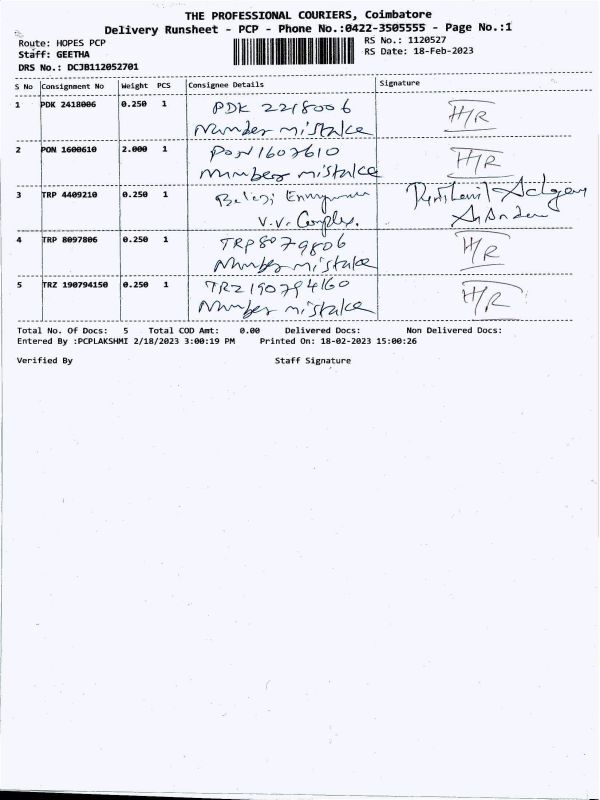 THE PROFESSIONAL COURIERS, Coimbatore
Delivery Runsheet - PCP - Phone No.:0422-3505555 - Page No.:1
Route: HOPES PCP
RS No.: 1120527
Staff: GEETHA
RS Date: 18-Feb-2023
DRS No.: DCJB112052701
S No Consignment No Weight PCS Consignee Details Signature
1 PDK 2418006 0.250 1 PDK 2218006 H/R
Number mistake
2 PON 1600610 2.000 1 PON 1607610 H/R
Number mistake
3 TRP 4409210 0.250 1
V.V. Complex.
4 TRP 8097806 0.250 1 TRP8079806 H/R
Number mistake
5 TRZ 190794150 0.250 1 TRZ190794160 H/R
Number mistake
Total No. Of Docs: 5 Total COD Amt: 0.00 Delivered Docs: Non Delivered Docs:
Entered By :PCPLAKSHMI 2/18/2023 3:00:19 PM Printed On: 18-02-2023 15:00:26
Verified By Staff Signature